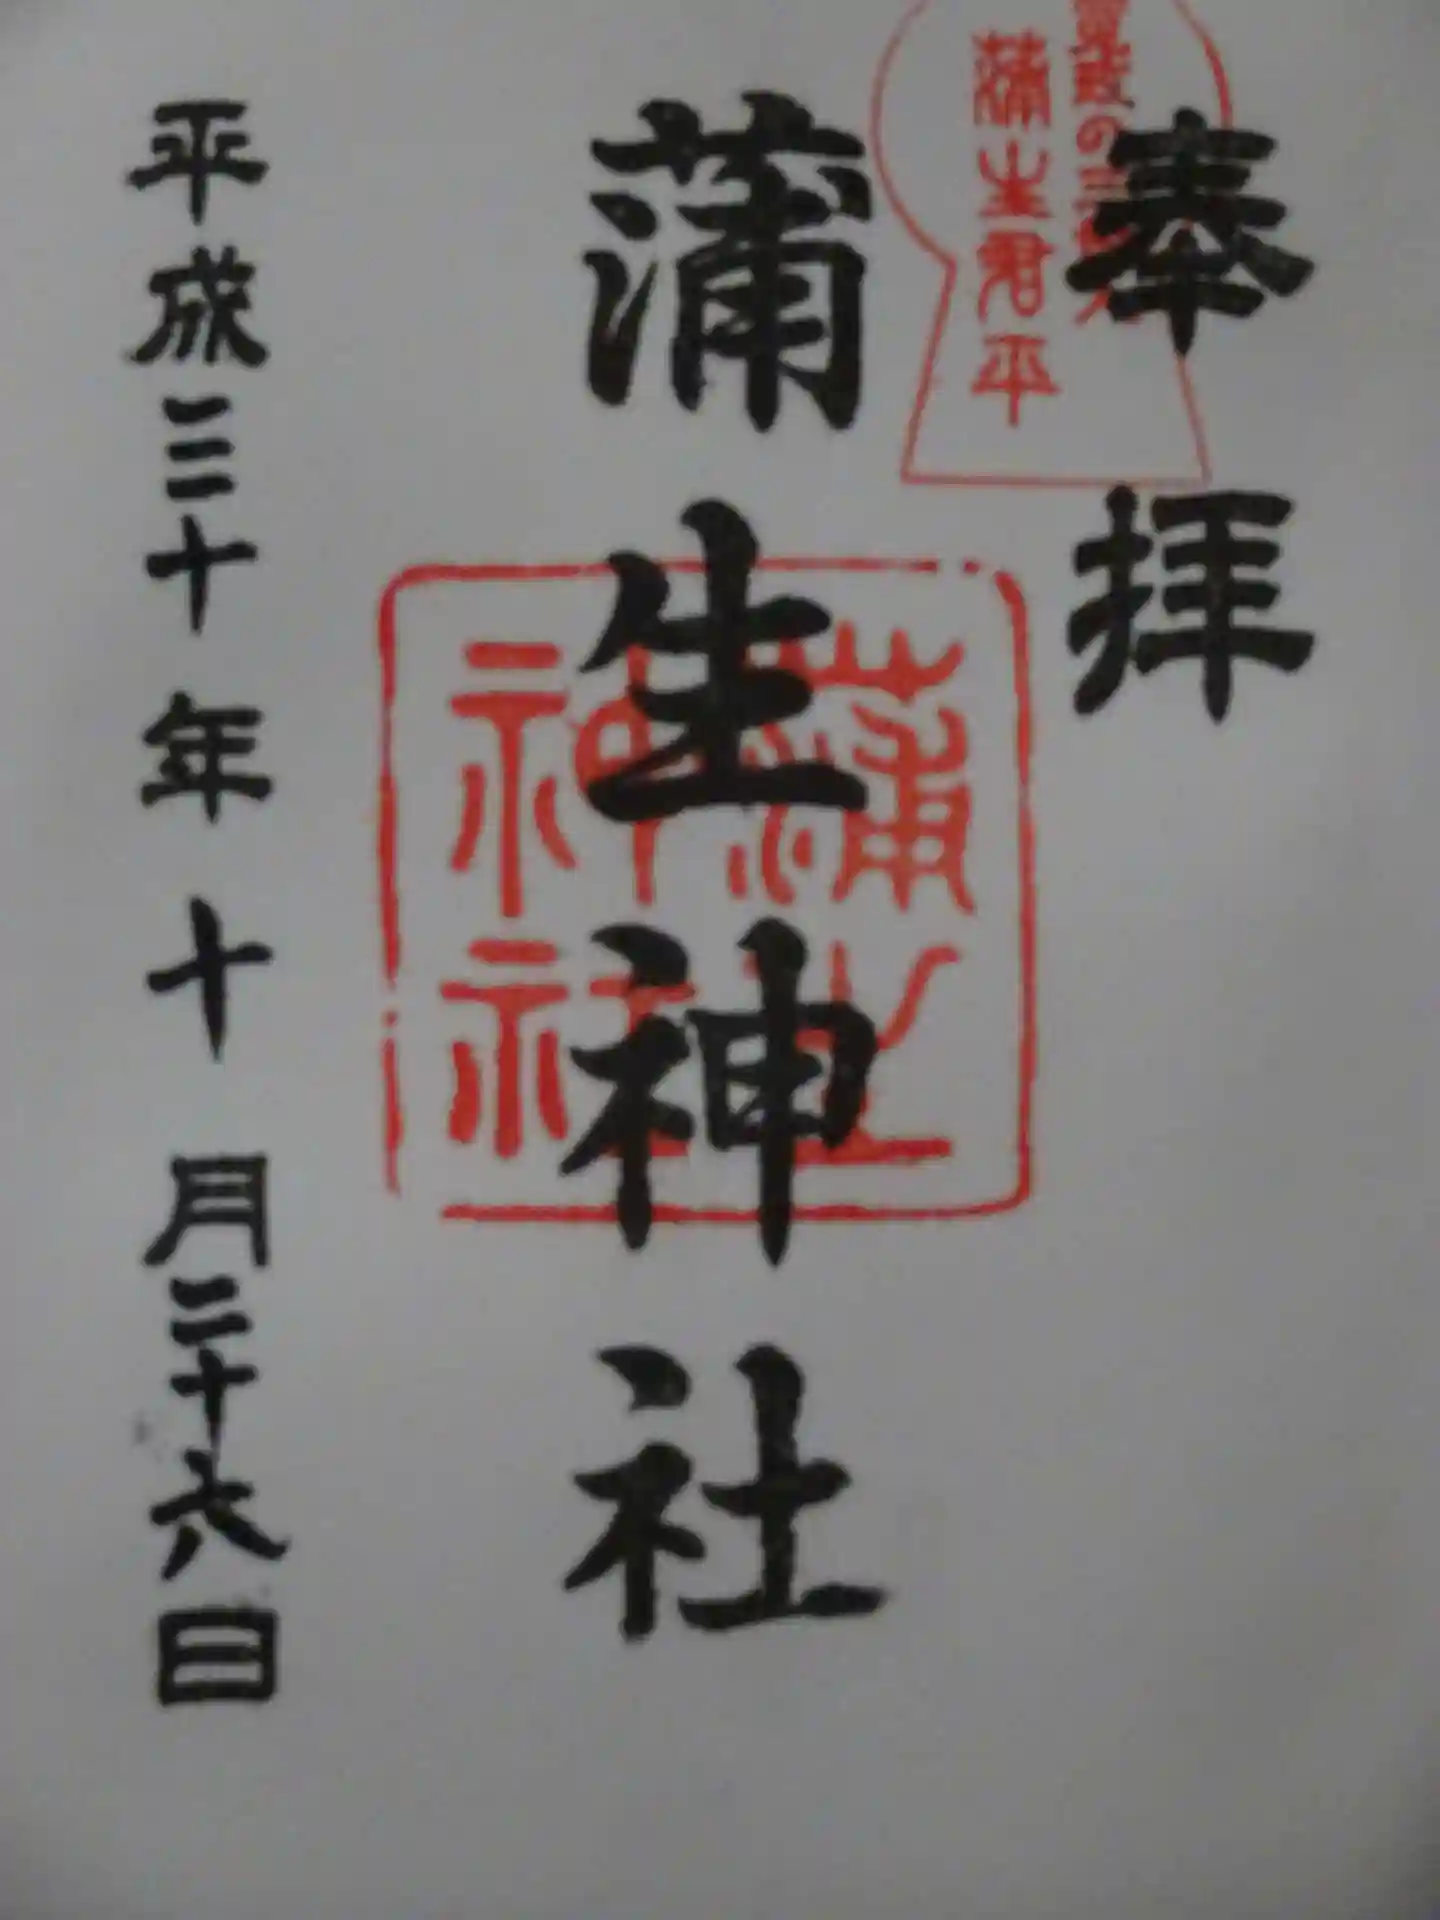 奉拝
寛政の三奇人
蒲生君平
蒲生神社
蒲生
神社
平成三十年十月二十六日